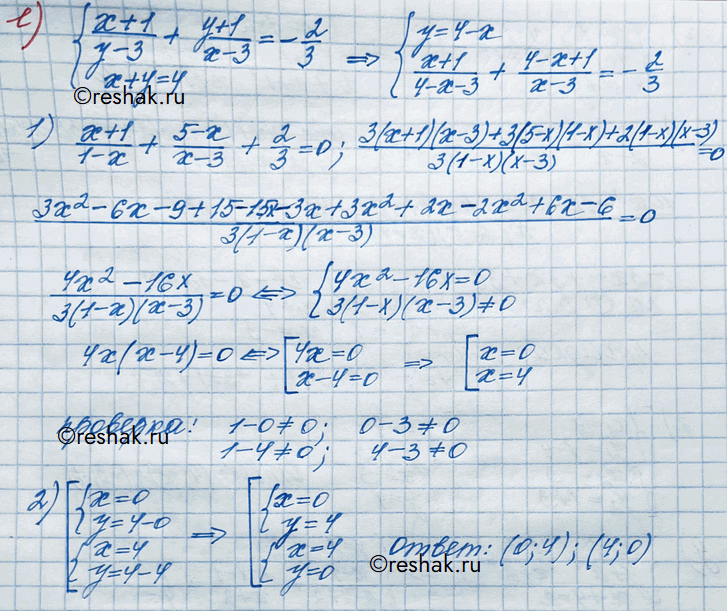 е) { (x+1)/(y-3) + (y+1)/(x-3) = -2/3 ; x+y=4 ⇒ { y=4-x ; (x+1)/(4-x-3) + (4-x+1)/(x-3) = -2/3
©reshak.ru
1) (x+1)/(1-x) + (5-x)/(x-3) + 2/3 = 0; (3(x+1)(x-3)+3(5-x)(1-x)+2(1-x)(x-3))/(3(1-x)(x-3)) = 0
(3x²-6x-9+15-15x-3x+3x²+2x-2x²+6x-6)/(3(1-x)(x-3)) = 0
(4x²-16x)/(3(1-x)(x-3)) = 0 ⇔ { 4x²-16x=0 ; 3(1-x)(x-3)≠0
4x(x-4)=0 ⇔ [ 4x=0 ; x-4=0 ⇒ [ x=0 ; x=4
проверка: 1-0≠0; 0-3≠0
©reshak.ru
1-4≠0; 4-3≠0
2) [ { x=0 ; y=4-0 ; { x=4 ; y=4-4 ⇒ [ { x=0 ; y=4 ; { x=4 ; y=0
Ответ: (0;4); (4;0)
©reshak.ru